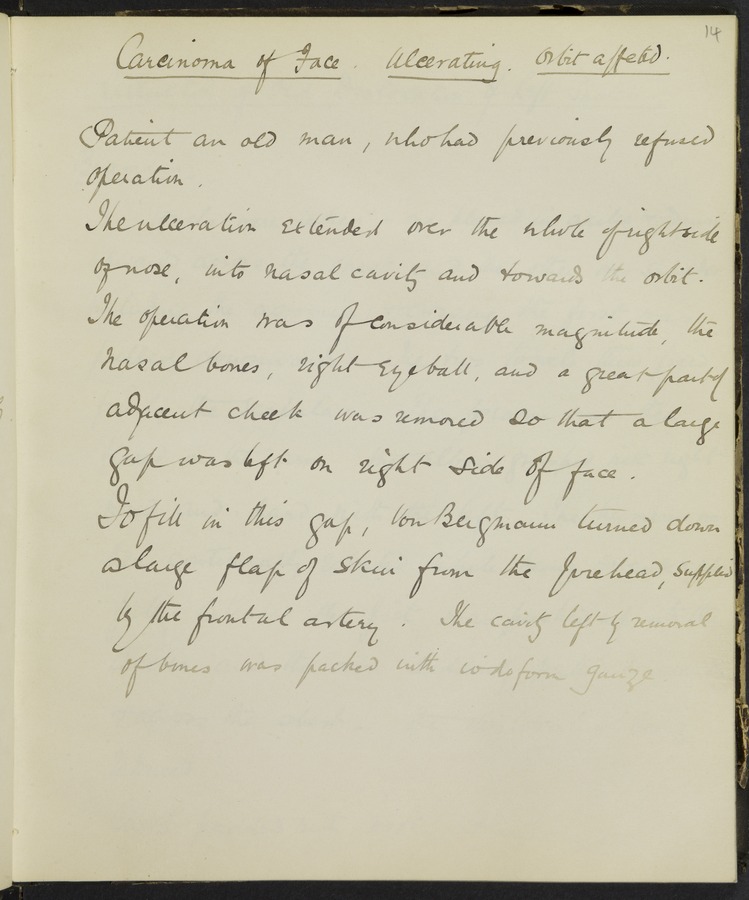 14
Carcinoma of Face. Ulcerating. Orbit affected.
Patient an old man, who had previously refused
operation.
The ulceration extended over the whole of right side
of nose, into nasal cavity and towards the orbit.
The operation was of considerable magnitude, the
nasal bones, right Eyeball, and a great part of
adjacent cheek was removed so that a large
gap was left on right side of face.
To fill in this gap, Von Bergmann turned down
a large flap of skin from the forehead, supplied
by the frontal artery. The cavity left by removal
of bones was packed with iodoform gauze